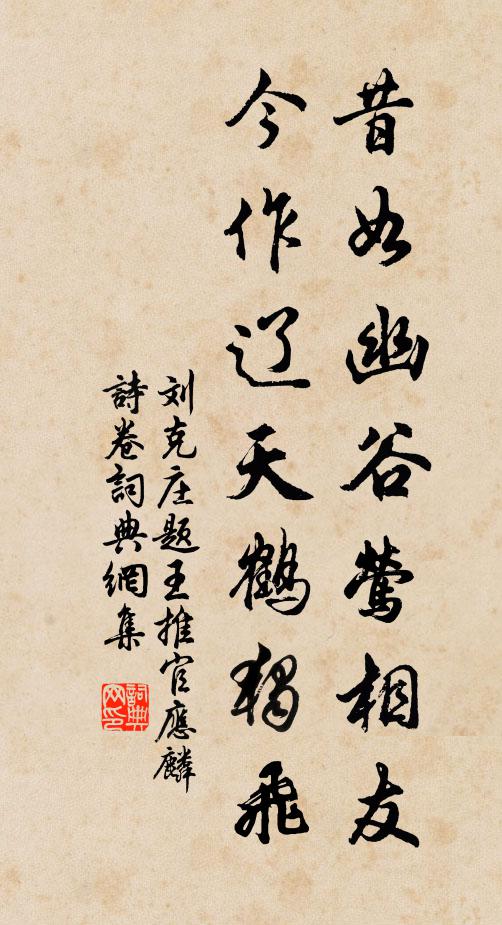 昔如幽谷莺相友
今作辽天鶴独飛
刘克庄题王推官應麟
詩卷詞典網集
詞典
网印